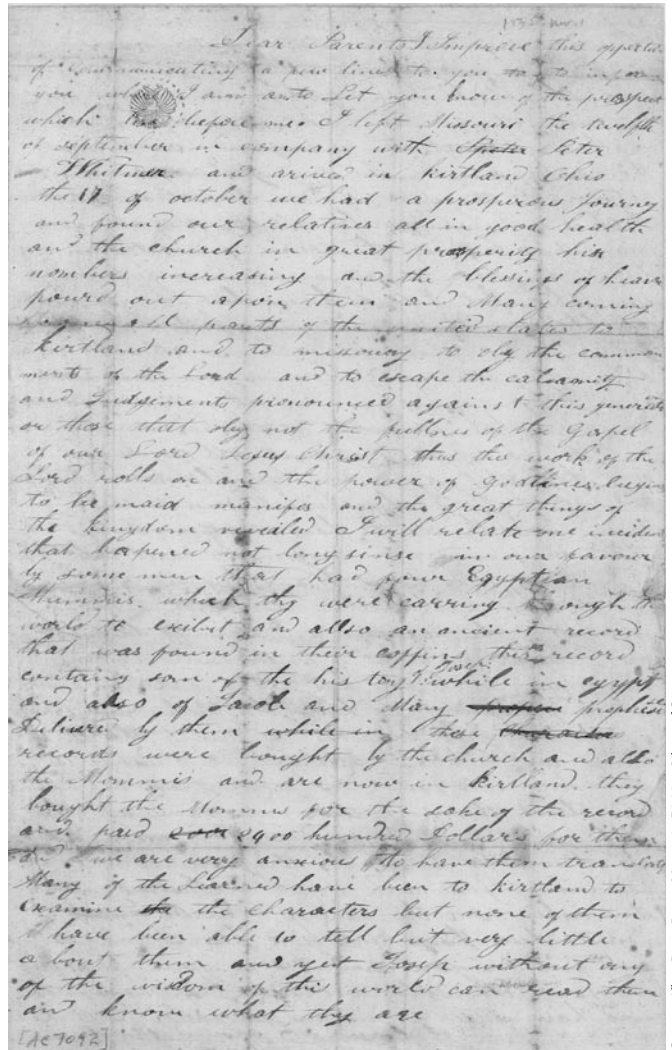 1835 Nov
Dear Parents I Improve this opportu
of communicating a few lines to you to inform
you where I am and to Let you know of the prospect
which before me I left Missouri the twelfth
of september in company with Peter
Whitmer and arived in kirtland Ohio
the 17 of october we had a prosperous Journey
and found our relatives all in good health
and the church in great prosperity his
nombers increasing and the blessings of heave
pourd out apon them and Many coming
from all parts of the united states to
kirtland and to missoury to oby the common
ments of the Lord and to escape the calamity
and Judgements pronounced against this generati
or those that oby not the fullness of the Gospel
of our Lord Jesus Christ thus the work of the
Lord rolls on and the power of godliness begins
to be maid manifes and the great things of
the kingdom reveiled I will relate one inciden
that hapened not long sinse in our favour
by some men that had four Egyptian
Mummis which thy were carring through the
world to exibut and allso an ancient record
that was found in their coffins this record
contains som of the history of Joseph while in egypt
and also of Jacob and Many prophesi
Delivred by them while in these
records were bought by the church and allso
the Mommis and are now in kirtland they
bought the Momms for the sake of the record
and paid 2400 hundred Dollars for them
and we are very anxious to have them translat
Many of the Learned have been to kirtland to
examine the characters but none of them
have been able to tell but very little
a bout them and yet Josep without any
of the wisdom of this world can read them
and know what thy are
[AC 7092]